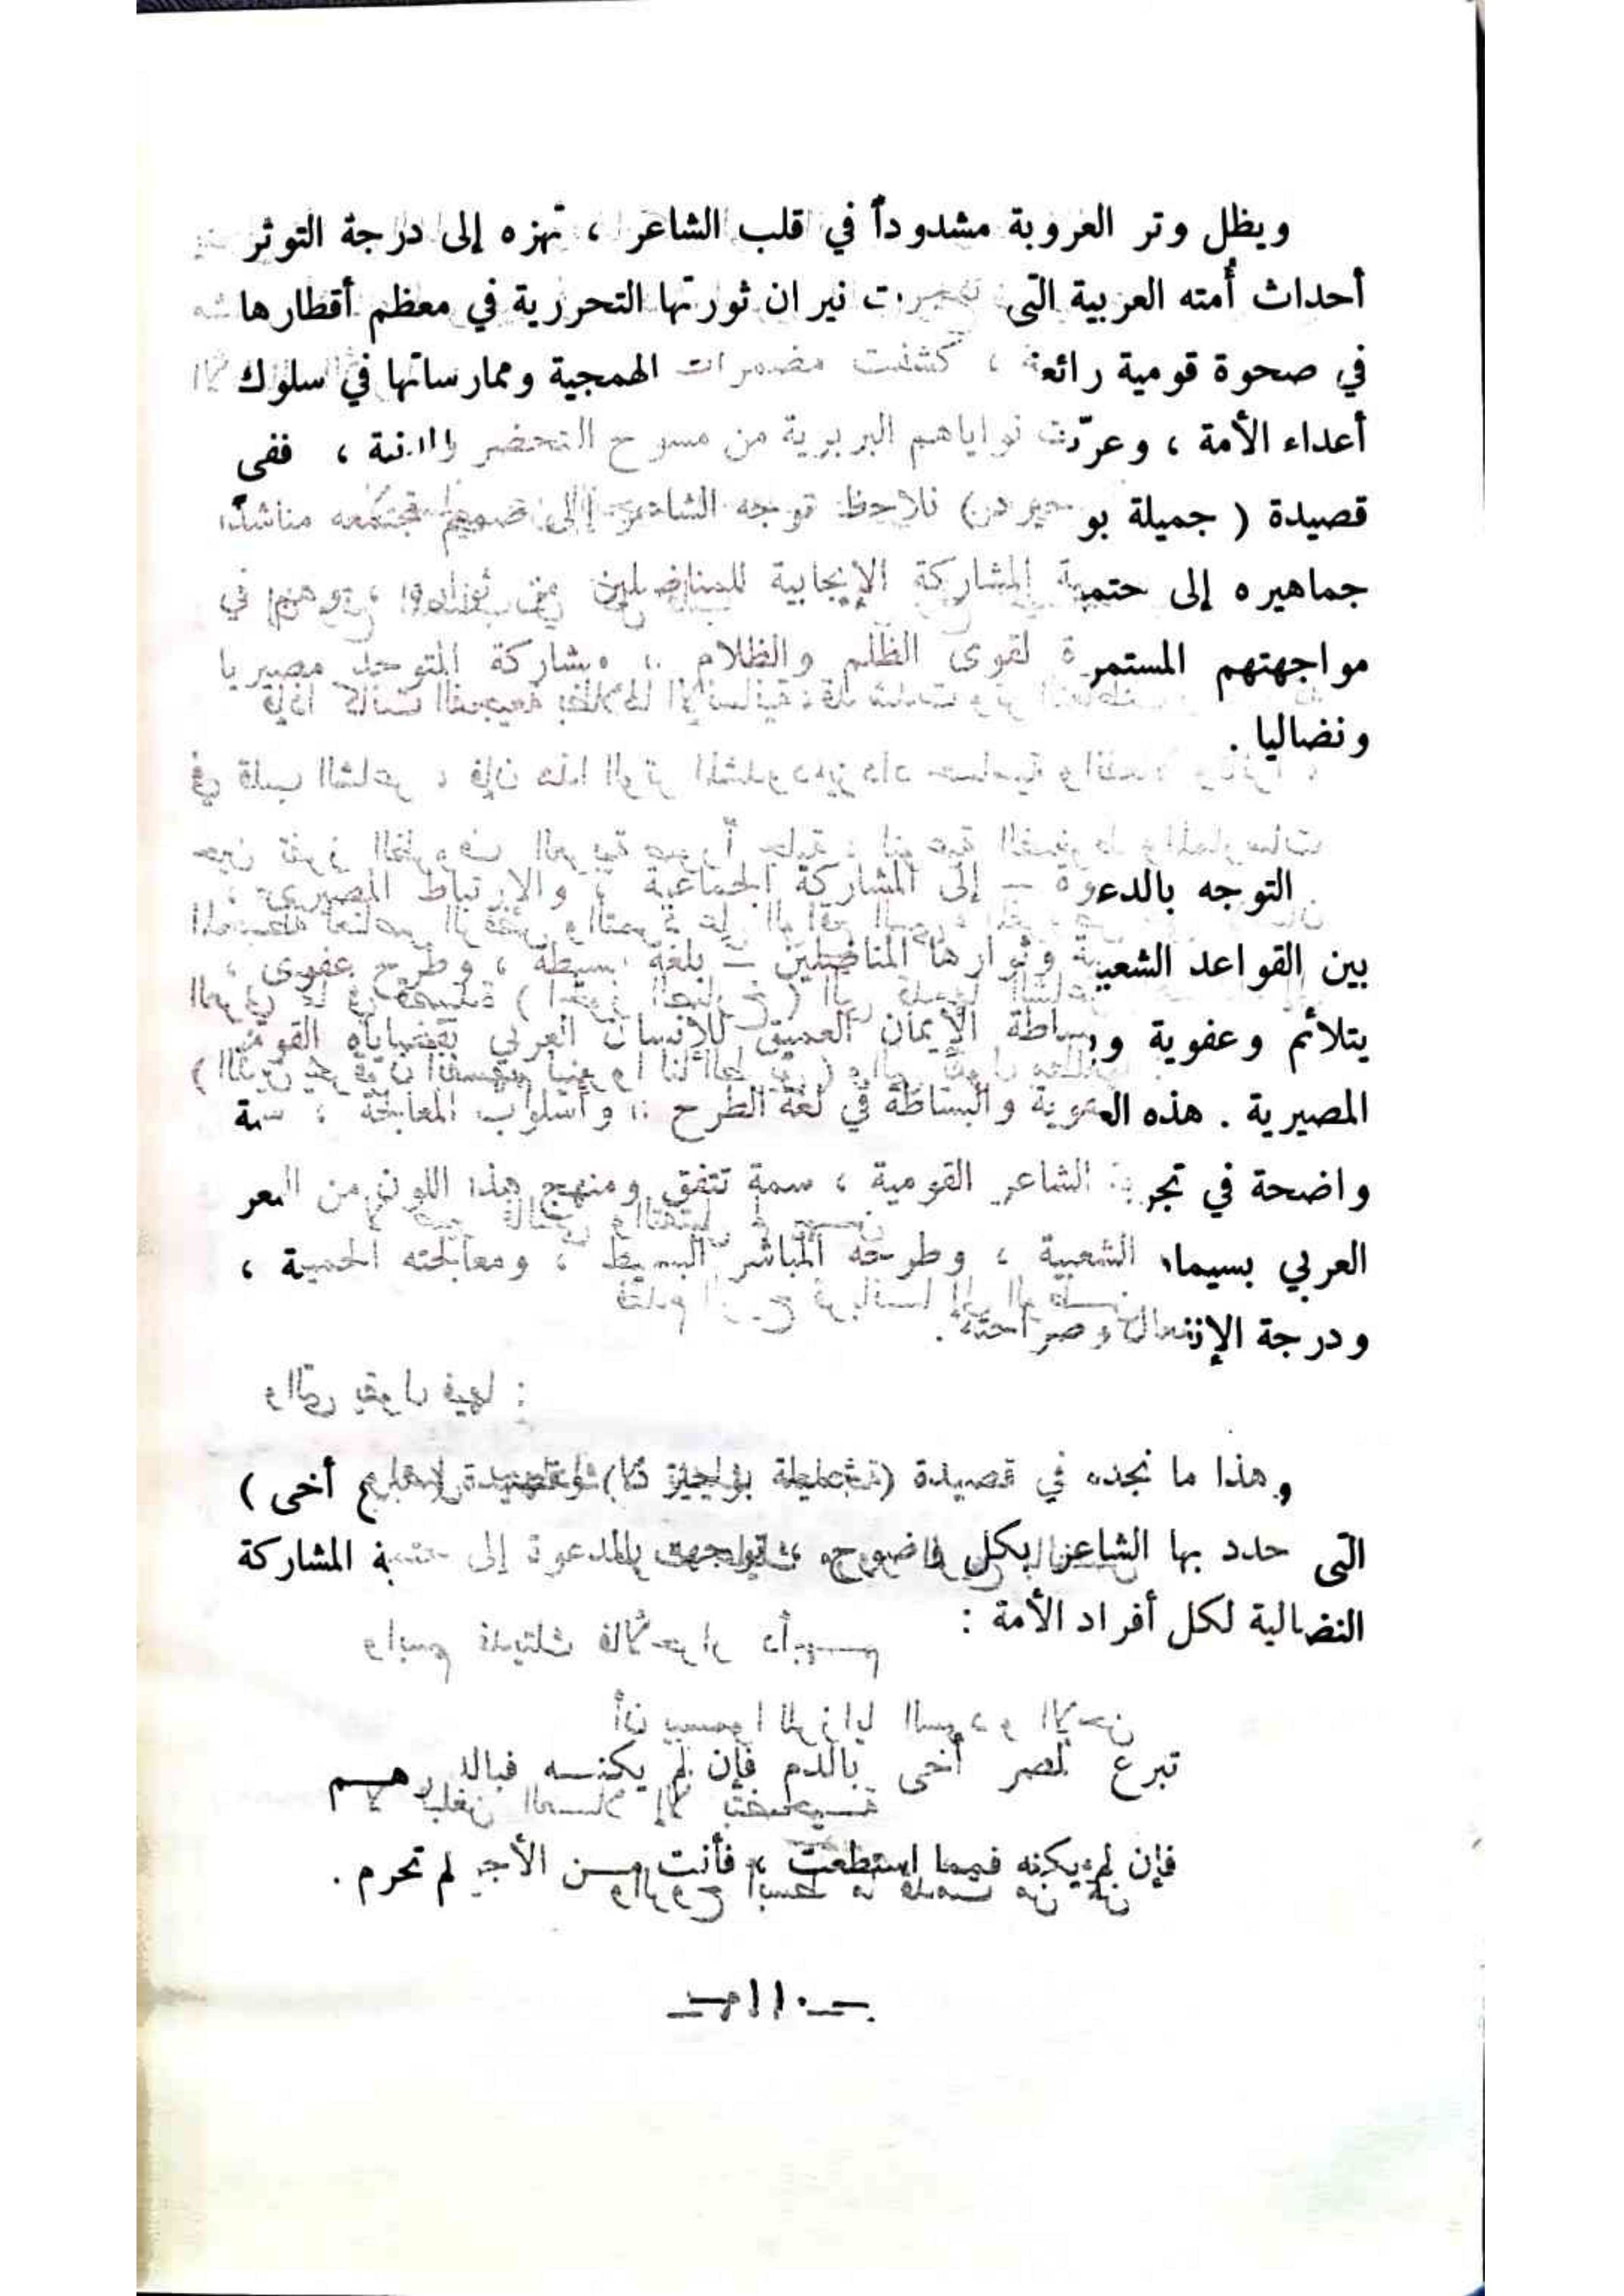 ويظل وتر العروبة مشدوداً في قلب الشاعر ، تهزه إلى درجة التوثر
أحداث أُمته العربية التى فجرت نيران ثورتها التحررية في معظم أقطارها
في صحوة قومية رائعة ، كشفت مضمرات الهمجية وممارساتها في سلوك
أعداء الأمة ، وعرّت نواياهم البربرية من مسوح التحضر ، ففى
قصيدة ( جميلة بو حيرد) نلاحظ توجه الشاعر إلى مناشدا
جماهيره إلى حتمية المشاركة الإيجابية للمناضلين في
مواجهتهم المستمرة لقوى الظلم والظلام ، مشاركة المتوحد مصيريا
ونضاليا .
التوجه بالدعوة – إلى المشاركة الجماعية ، والارتباط المصيرى ،
بين القواعد الشعبية وثوارها المناضلين – بلغة بسيطة ، وطرح عفوى ،
يتلائم وعفوية وبساطة الإيمان العميق للإنسان العربي بقضاياه القومية
المصيرية . هذه العفوية والبساطة في لغة الطرح ، وأسلوب المعالجة ، سمة
واضحة في تجربة الشاعر القومية ، سمة تتفق ومنهج هذا اللون من الشعر
العربي بسيماه الشعبية ، وطرحه المباشر البسيط ، ومعالجته الحميمة ،
ودرجة الإنفعال وصراحته .
وهذا ما نجده في قصيدة ( أخى )
التى حدد بها الشاعر بكل وضوح ، بالدعوة إلى حتمية المشاركة
النضالية لكل أفراد الأمة :
تبرع لمصر أخى بالدم فإن لم يكنه فبالدرهم
فإن لم يكنه فبما استطعت ، فأنت من الأجر لم تحرم .